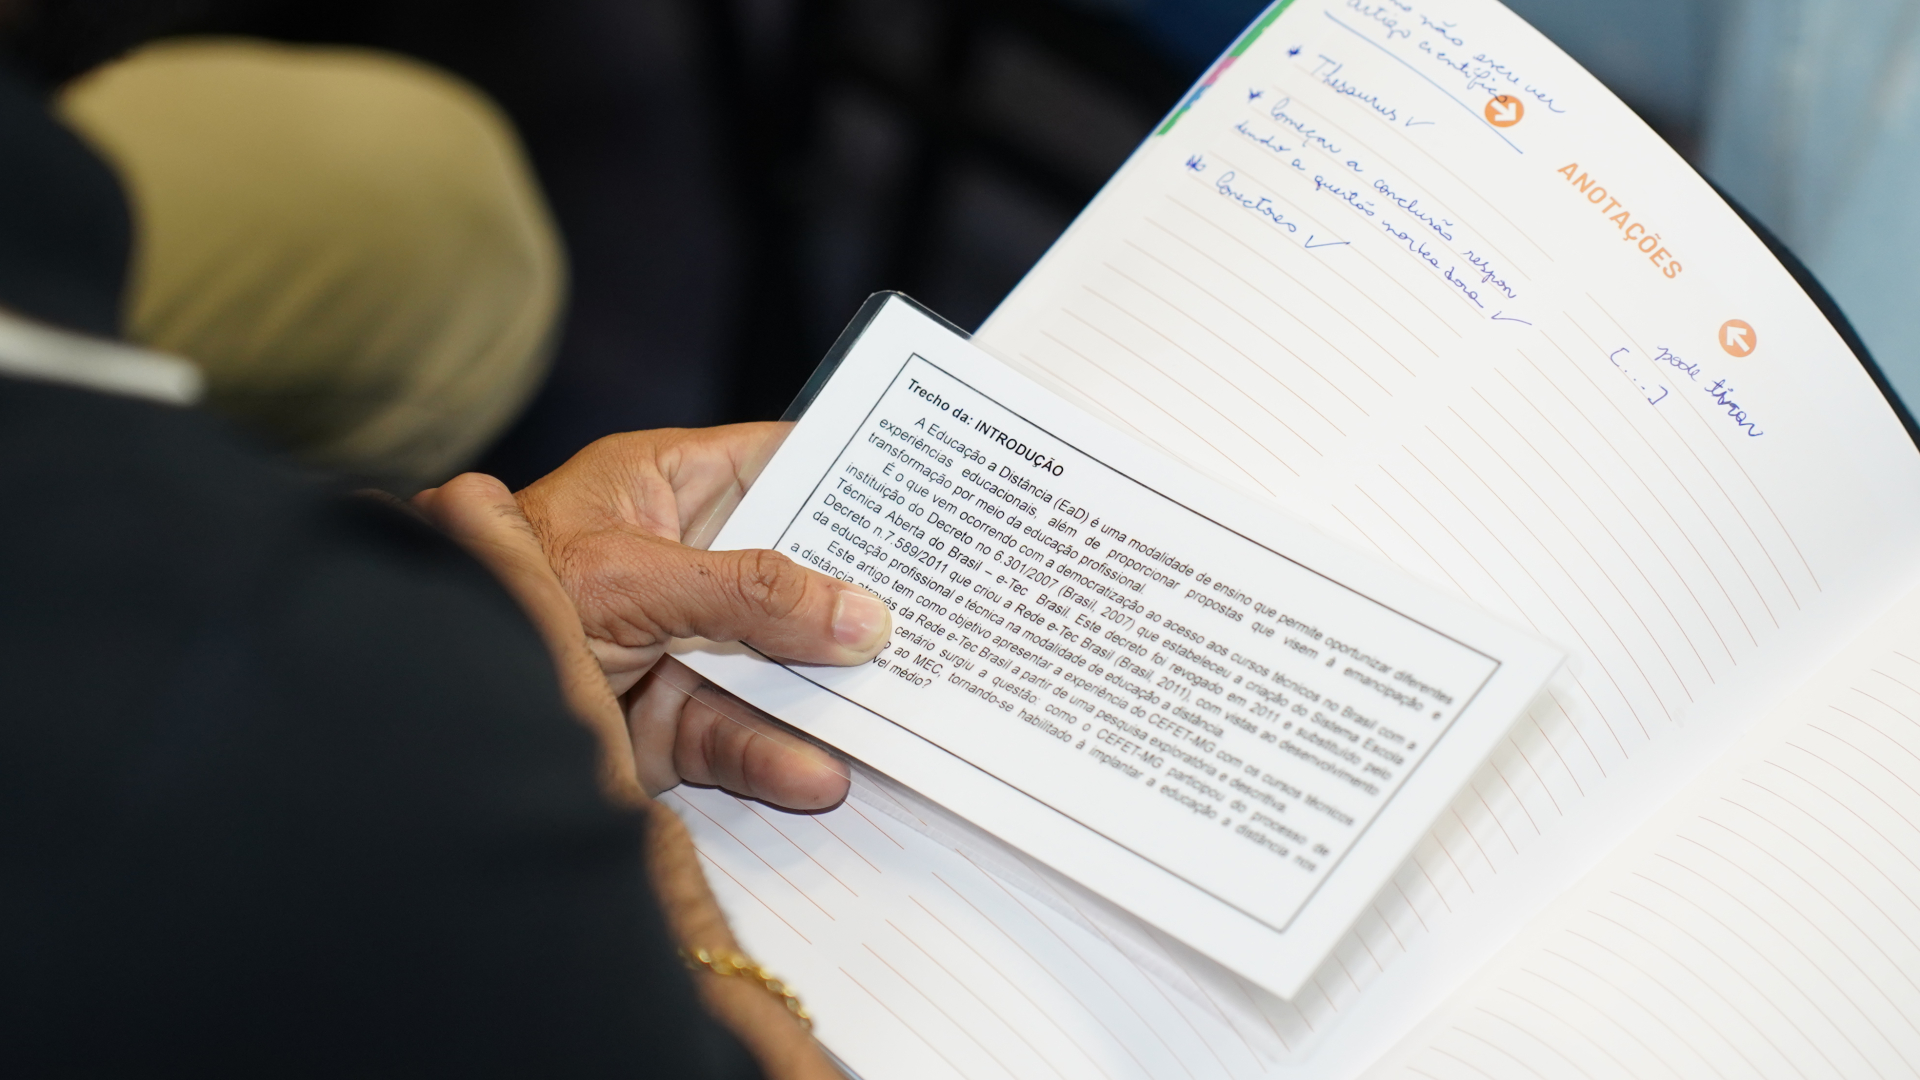 não escrever
artigo científico
* Thesaurus ✓
* Começar a conclusão respon
dendo a questão norteadora ✓
* Conectores ✓
ANOTAÇÕES
pode tirar
[....]
Trecho da: INTRODUÇÃO
A Educação a Distância (EaD) é uma modalidade de ensino que permite oportunizar diferentes
experiências educacionais, além de proporcionar propostas que visem à emancipação e
transformação por meio da educação profissional.
É o que vem ocorrendo com a democratização ao acesso aos cursos técnicos no Brasil com a
instituição do Decreto no 6.301/2007 (Brasil, 2007) que estabeleceu a criação do Sistema Escola
Técnica Aberta do Brasil – e-Tec Brasil. Este decreto foi revogado em 2011 e substituído pelo
Decreto n.7.589/2011 que criou a Rede e-Tec Brasil (Brasil, 2011), com vistas ao desenvolvimento
da educação profissional e técnica na modalidade de educação a distância.
Este artigo tem como objetivo apresentar a experiência do CEFET-MG com os cursos técnicos
a distância através da Rede e-Tec Brasil a partir de uma pesquisa exploratória e descritiva.
cenário surgiu a questão: como o CEFET-MG participou do processo de
ao MEC, tornando-se habilitado à implantar a educação a distância nos
médio?